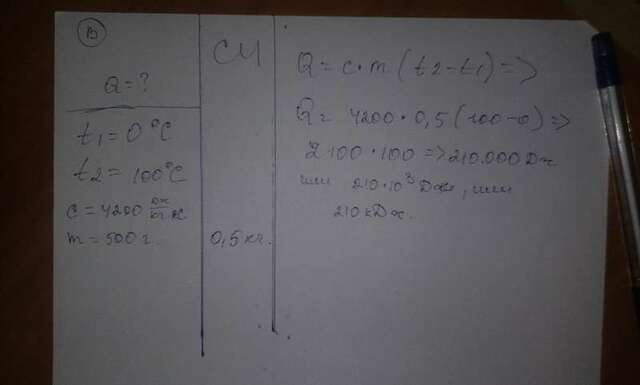 В
Q = ?
t1 = 0°C
t2 = 100°C
c = 4200 Дж/кг °C
m = 500 г.
СИ
0,5 кг.
Q = c · m (t2 - t1) =>
Q = 4200 · 0,5 (100 - 0) =>
2100 · 100 => 210.000 Дж
или 210 · 10³ Дж, или
210 кДж.